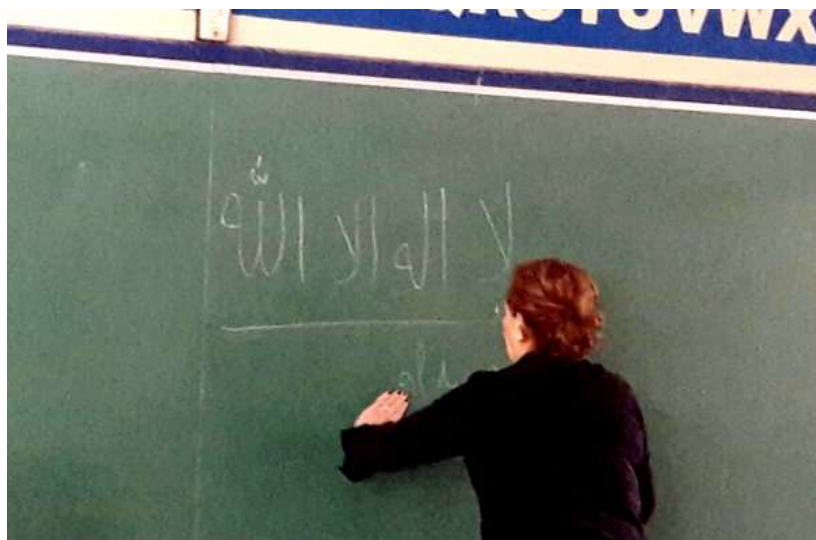 QRSTUVWX
لا اله الا الله